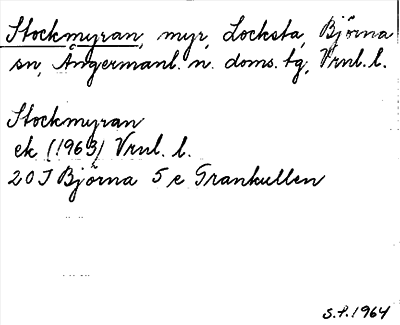 Stockmyran, myr, Locksta, Björna
sn, Ångermanl. n. doms. tg, Vrnl. l.
Stockmyran
ek (1963) Vrnl. l.
20 J Björna 5 e Trankullen
S.P. 1964